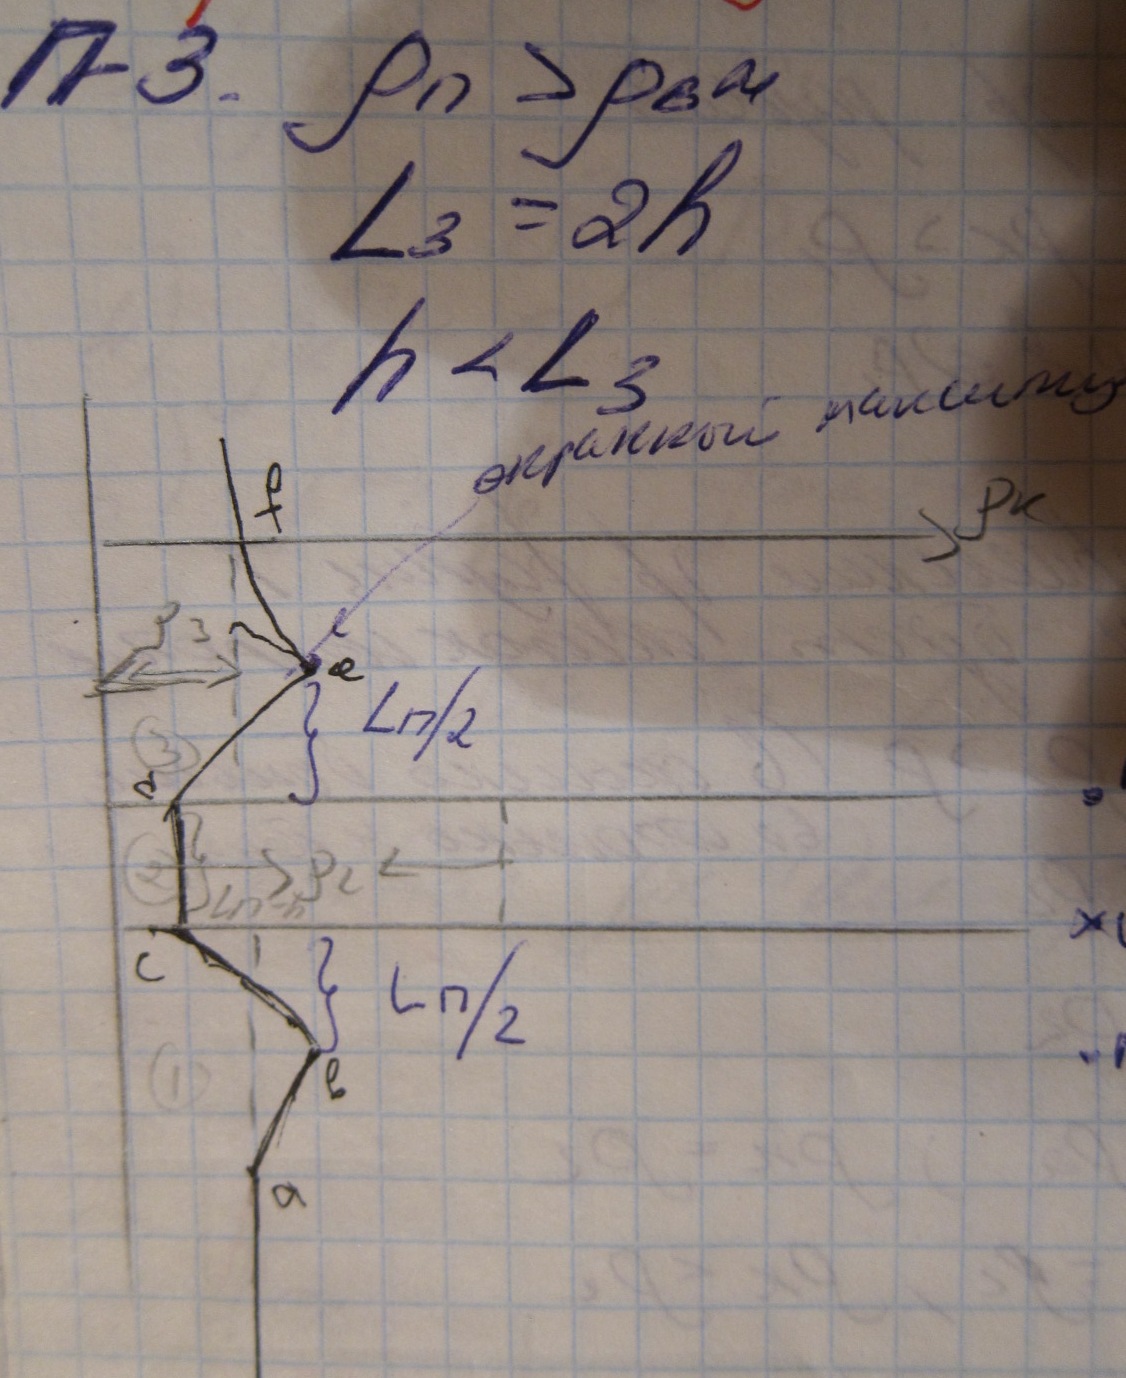 П-3. ρп > ρвм
L3 = 2h
h < L3
экранный максимум
f
ρк
ρ3
e
Lп/2
③
d
②
ρ2
Lп-h
c
Lп/2
①
b
a